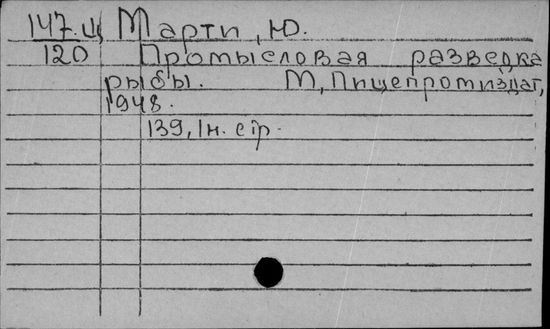 147.Ц Марти, Ю.
120 Промысловая разведка
рыбы. М, Пищепромиздат,
1948.
139, 1н. стр.